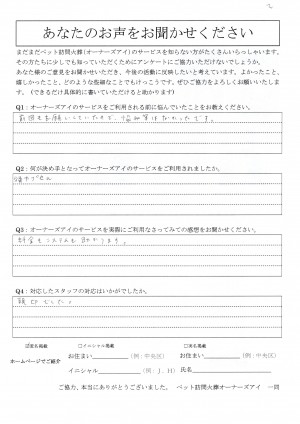 あなたのお声をお聞かせください
まだまだペット訪問火葬(オーナーズアイ)のサービスを知らない方がたくさんいらっしゃいます。
その方たちに少しでも知っていただくためにアンケートにご協力いただけないでしょうか。
あなた様のご意見をお聞かせいただき、今後の活動に反映したいと考えています。よかったこと、
嬉しかったこと、どのような些細なことでもけっこうです。ぜひご協力をよろしくお願いいたしま
す。(できるだけ具体的に書いていただけると助かります)
Q1：オーナーズアイのサービスをご利用される前に悩んでいたことをお教えください。
前回もお願いしていたので、悩み等はなかったです。
Q2：何が決め手となってオーナーズアイのサービスをご利用されましたか。
Q3：オーナーズアイのサービスを実際にご利用なさってみての感想をお聞かせください。
料金もシステムも助かります。
Q4：対応したスタッフの対応はいかがでしたか。
親切でした。
ホームページでご紹介
☑匿名掲載
□イニシャル掲載
□実名掲載
お住まい (例：中央区)
お住まい (例：中央区)
イニシャル (例：J．H)
氏名
ご協力、本当にありがとうございました。 ペット訪問火葬オーナーズアイ 一同